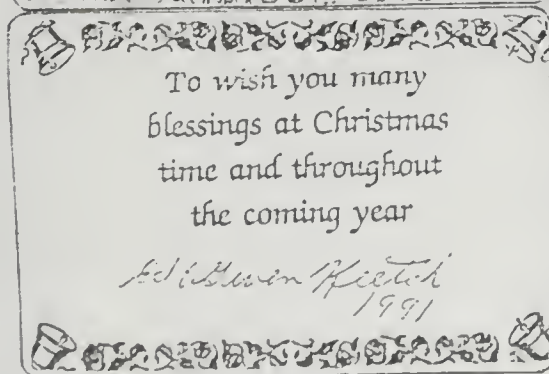 To wish you many
blessings at Christmas
time and throughout
the coming year
Gwen
1991